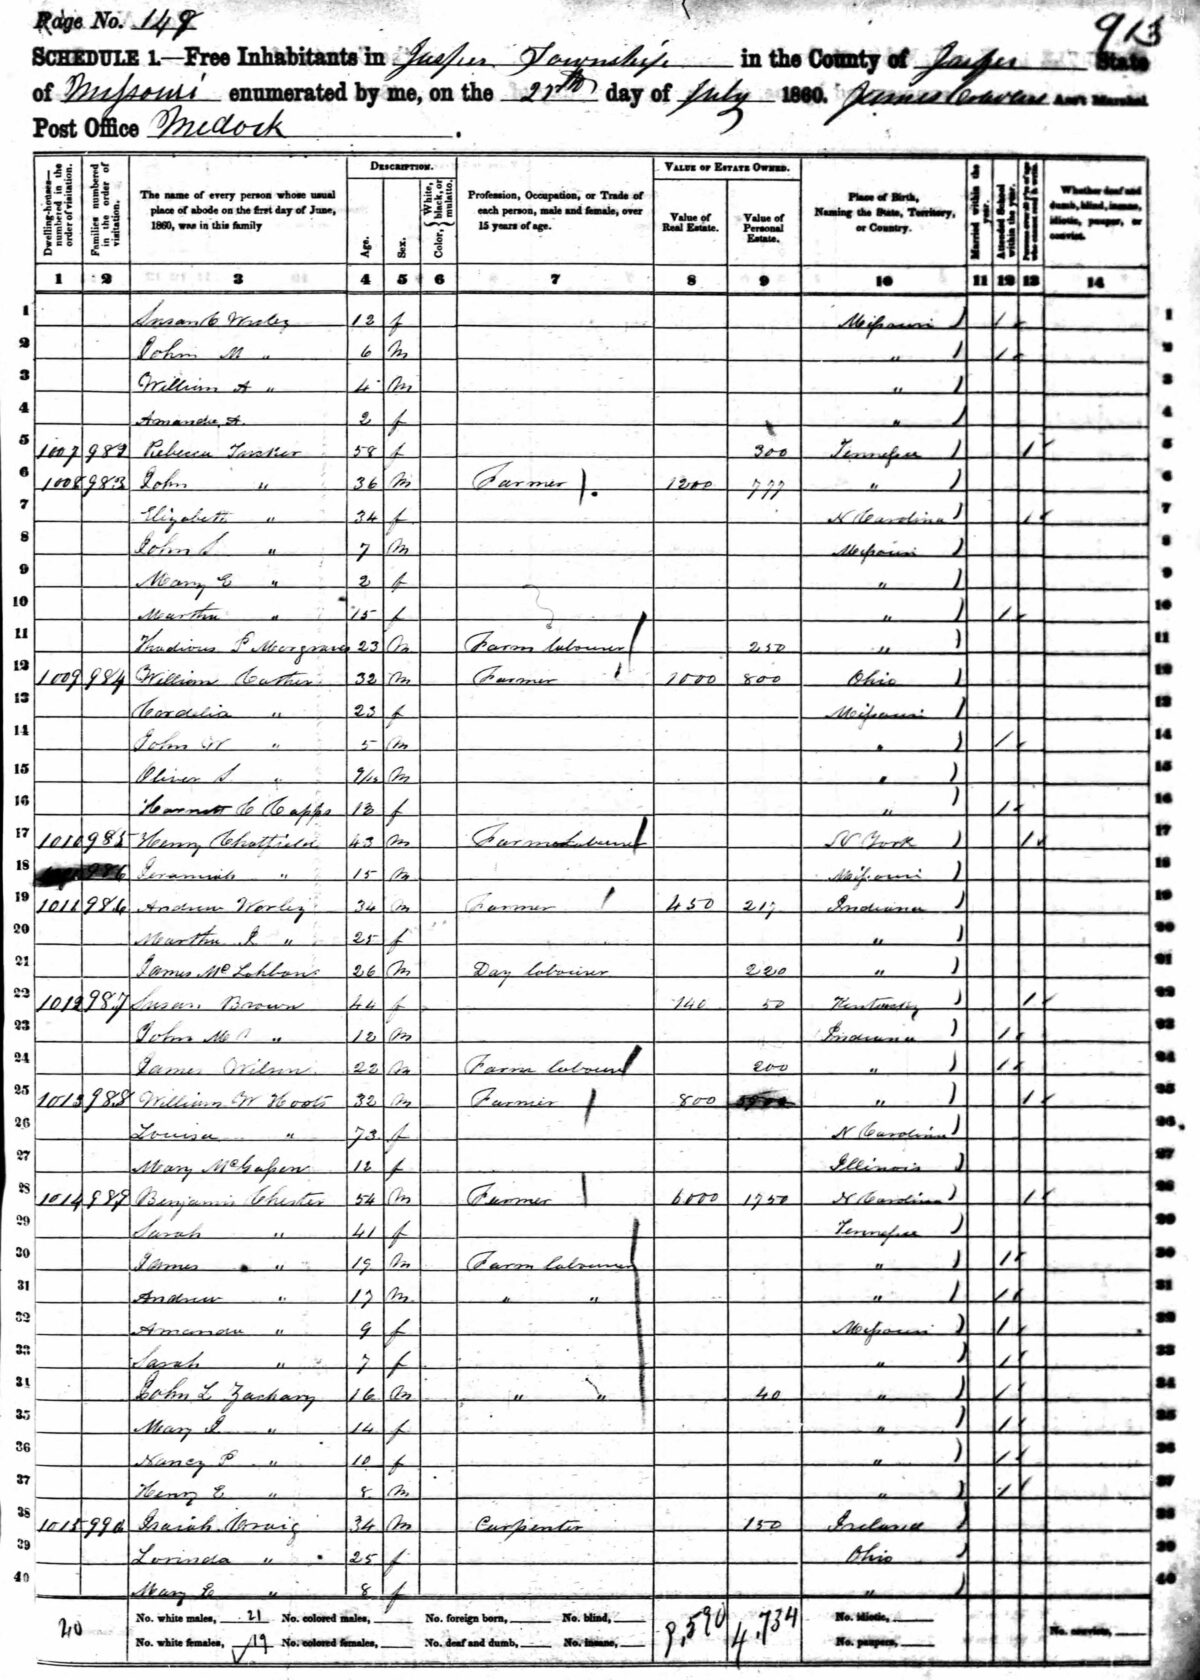 Page No. 149
913
SCHEDULE 1.—Free Inhabitants in Jasper Township in the County of Jasper State
of Missouri enumerated by me, on the day of July 1860. James Ass't Marshal
Post Office Medock.
Dwelling-houses—numbered in the order of visitation. Families numbered in the order of visitation. The name of every person whose usual place of abode on the first day of June, 1860, was in this family DESCRIPTION. Age. Sex. Color, {White, black, or mulatto. Profession, Occupation, or Trade of each person, male and female, over 15 years of age. VALUE OF ESTATE OWNED. Value of Real Estate. Value of Personal Estate. Place of Birth, Naming the State, Territory, or Country. Married within the year. Attended School within the year. Whether deaf and dumb, blind, insane, idiotic, pauper, or convict.
1 2 3 4 5 6 7 8 9 10 11 12 13 14
1 Susan C 12 f Missouri ) 1 1
2 John M " 6 m " ) 1 2
3 William A " 4 m " ) 3
4 Amanda A. 2 f " ) 4
5 1007 982 Rebecca Tasker 58 f 300 Tennessee ) 1 5
6 1008 983 John " 36 m Farmer 1200 777 " ) 6
7 Elizabeth " 34 f N Carolina ) 1 7
8 John S " 7 m Missouri ) 8
9 Mary E " 2 f " ) 9
10 Martha " 15 f " ) 1 10
11 P Morgraves 23 m Farm labourer 250 " ) 11
12 1009 984 William Cather 32 m Farmer 1000 800 Ohio ) 12
13 Cordelia " 23 f Missouri ) 13
14 John W " 5 m " ) 1 14
15 Oliver S " 9/12 m " ) 15
16 C Capps 12 f " ) 1 16
17 1010 985 Henry Chatfield 43 m Farm Labourer N York ) 1 17
18 986 Jeramiah " 15 m Missouri ) 18
19 1011 986 Andrew Worley 34 m Farmer 450 217 Indiana ) 19
20 Martha J " 25 f " ) 20
21 James 26 m Day labourer 220 " ) 21
22 1012 987 Susan Brown 44 f 140 50 Kentucky ) 1 22
23 John M " 12 m Indiana ) 1 23
24 James Wilson 22 m Farm labourer 200 " ) 1 24
25 1013 988 William W Hoots 32 m Farmer 800 " ) 1 25
26 Louisa " 73 f N Carolina ) 26
27 Mary 12 f Illinois ) 27
28 1014 989 Benjamin Chester 54 m Farmer 6000 1750 N Carolina ) 1 28
29 Sarah " 41 f Tennessee ) 29
30 James " 19 m Farm labourer " ) 1 30
31 Andrew " 17 m " " " ) 1 31
32 Amanda " 9 f Missouri ) 1 32
33 Sarah " 7 f " ) 1 33
34 John L Zachary 16 m " " 40 " ) 1 34
35 Mary J. " 14 f " ) 1 35
36 Nancy P " 10 f " ) 1 36
37 Henry E " 8 m " ) 1 37
38 1015 990 Isaiah Craig 34 m Carpenter 150 Ireland ) 38
39 Lorinda " 25 f Ohio ) 39
40 Mary E " 8 f " ) 40
No. white males, 21 No. colored males, No. foreign born, No. blind, No. idiotic,
40 9,590 4,734 No. convicts,
No. white females, 19 No. colored females, No. deaf and dumb, No. insane, No. paupers,